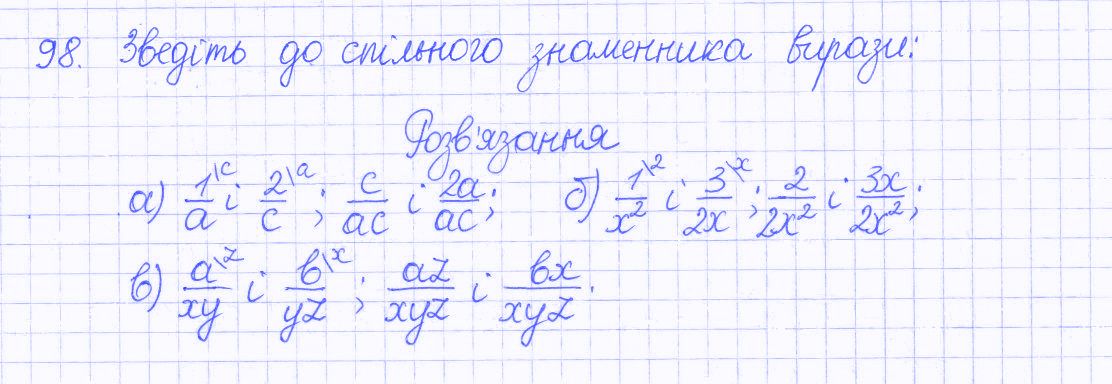 98. Зведіть до спільного знаменника вирази:
Розв'язання
а) 1\c/a і 2\a/c ; c/ac і 2a/ac; б) 1\2/x² і 3\x/2x ; 2/2x² і 3x/2x²;
в) a\z/xy і b\x/yz ; az/xyz і bx/xyz.